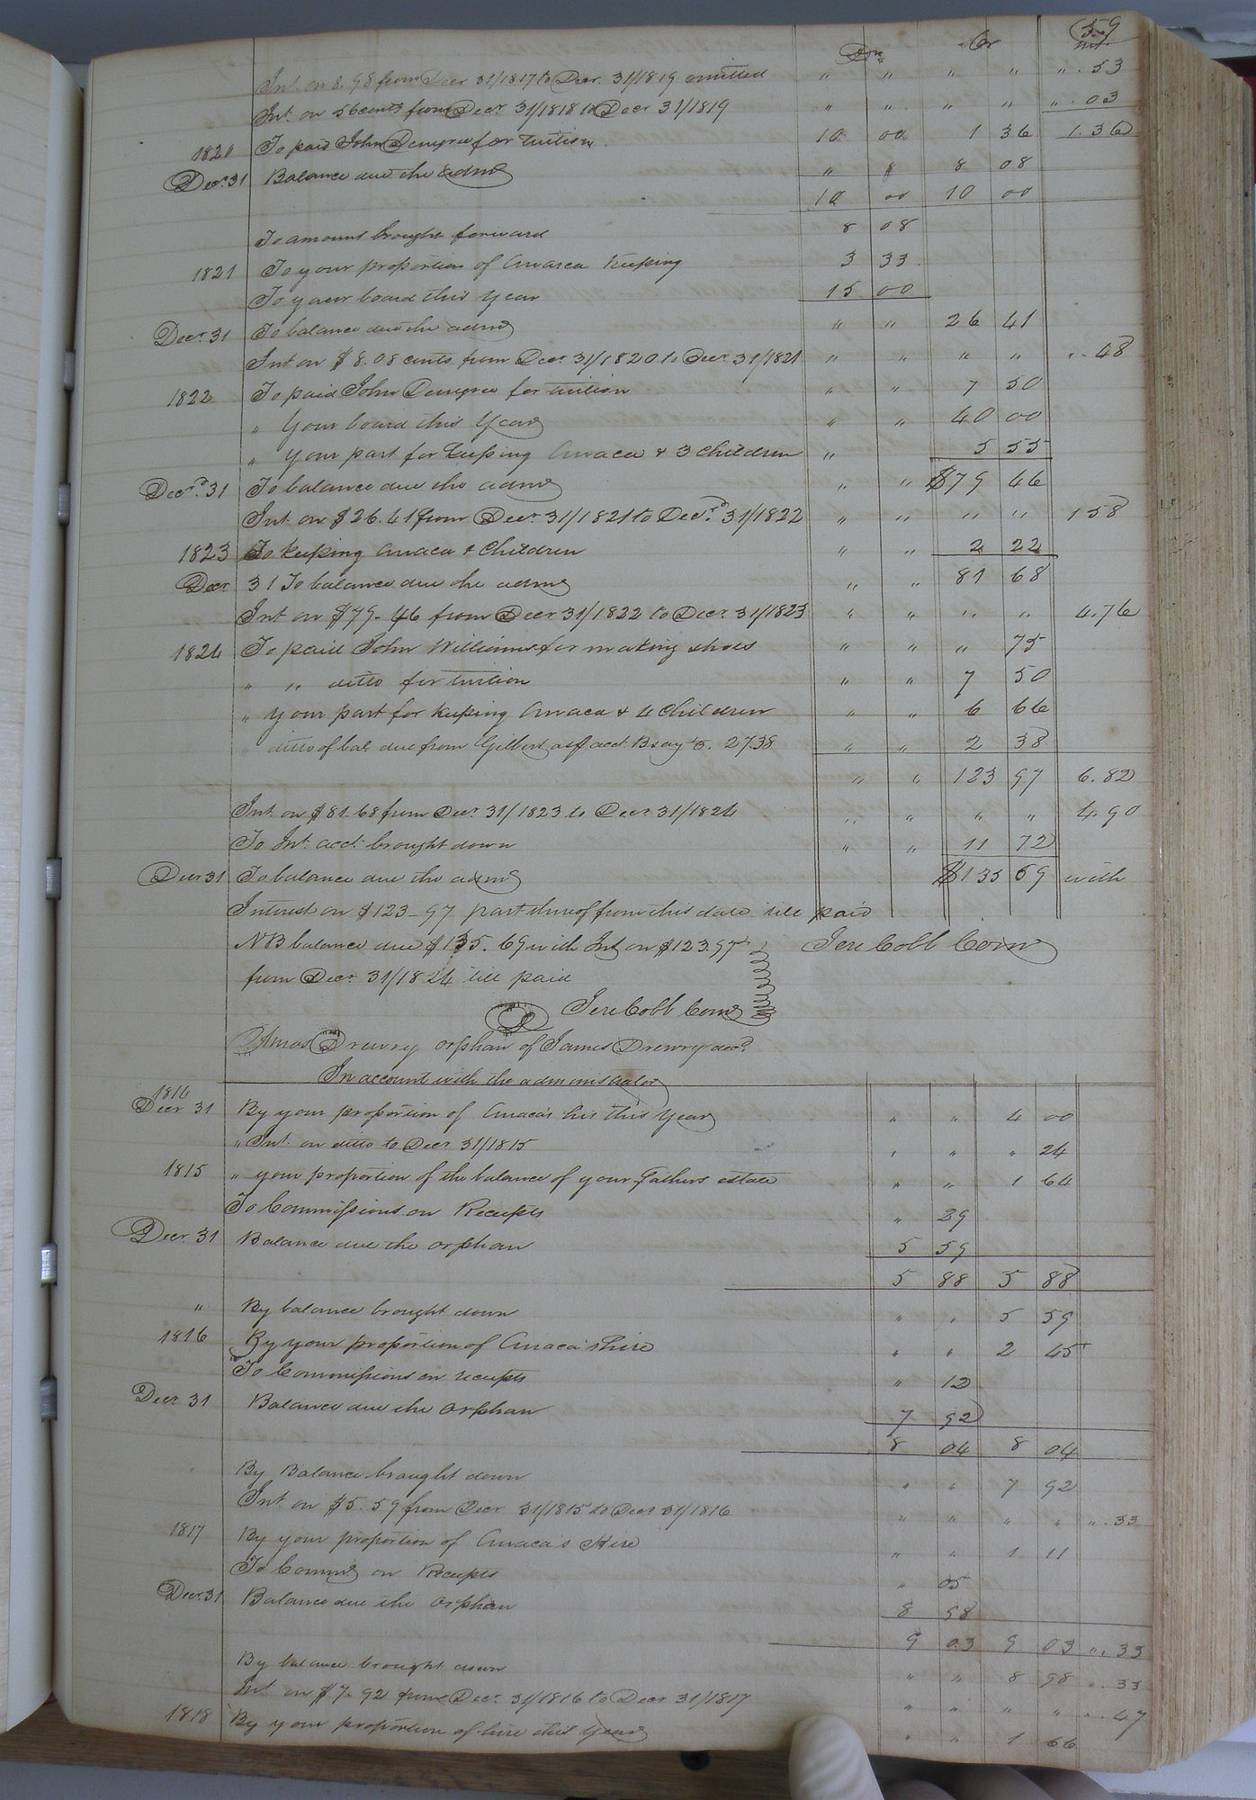 59
Dr Cr Int.
Int. on 8.98 from Decr 31/1817 to Decr. 31/1819 omitted " " " " " . 53
Int. on 56 cents from Decr 31/1818 to Decr 31/1819 " " " " " . 03
1820 To paid John for Tuition 10 00 1 36 1.36
Decr 31 Balance due the adms " " 8 08
10 00 10 00
To amount brought forward 8 08
1821 To your proportion of keeping 3 33
To your board this year 15 00
Decr 31 To balance due the adms " " 26 41
Int on $8.08 cents from Decr 31/1820 to Decr 31/1821 " " " " " . 48
1822 To paid John for tuition " " 7 50
" Your board this Year " " 40 00
" your part for keeping & 3 children " 5 55
Decr 31 To balance due the adms " " $79 46
Int. on $26.41 from Decr 31/1821 to Decr 31/1822 " " " " 1 58
1823 To keeping & Children " " 2 22
Decr 31 To balance due the adms " " 81 68
Int on $79.46 from Decr 31/1822 to Decr 31/1823 " " " " 4.76
1824 To paid John Williams for making shoes " " " 75
" " ditto for tuition " " 7 50
" your part for keeping & 4 Children " " 6 66
ditto of bal due from Gilbert as pr acct. B say 27.38 " " 2 38
" " 123 97 6.82
Int. on $81.68 from Decr 31/1823 to Decr 31/1824 " " " " 4.90
To Int. acct. brought down " " 11 72
Decr 31 To balance due the adms $135 69 with
Interest on $123.97 part thereof from this date till paid
NB balance due $135.69 with Int on $123.97 Jere Cobb Comr
from Decr 31/1824 till paid
Jere Cobb Comr
Amos Drewry orphan of James Drewry decd
In account with the administrator
1814
Decr 31 By your proportion of hire this Year " " 4 00
" Int. on ditto to Decr 31/1815 " " " 24
1815 " your proportion of the balance of your Fathers estate " " 1 64
To Commissions on Receipts " 29
Decr. 31 Balance due the orphan 5 59
5 88 5 88
" By balance brought down " " 5 59
1816 By your proportion of hire " " 2 45
To Commissions on receipts " 12
Decr 31 Balance due the orphan 7 92
8 04 8 04
By Balance brought down " " 7 92
Int on $5.59 from Decr 31/1815 to Decr 31/1816 " " " " " . 33
1817 By your proportion of Hire " " 1 11
To Comms on Receipts " 05
Decr. 31 Balance due the orphan 8 98
9 03 9 03 " . 33
By balance brought down " " 8 98 " . 33
Int on $7.92 from Decr 31/1816 to Decr 31/1817 " " " " " . 47
1818 By your proportion of hire this Year " " 1 66